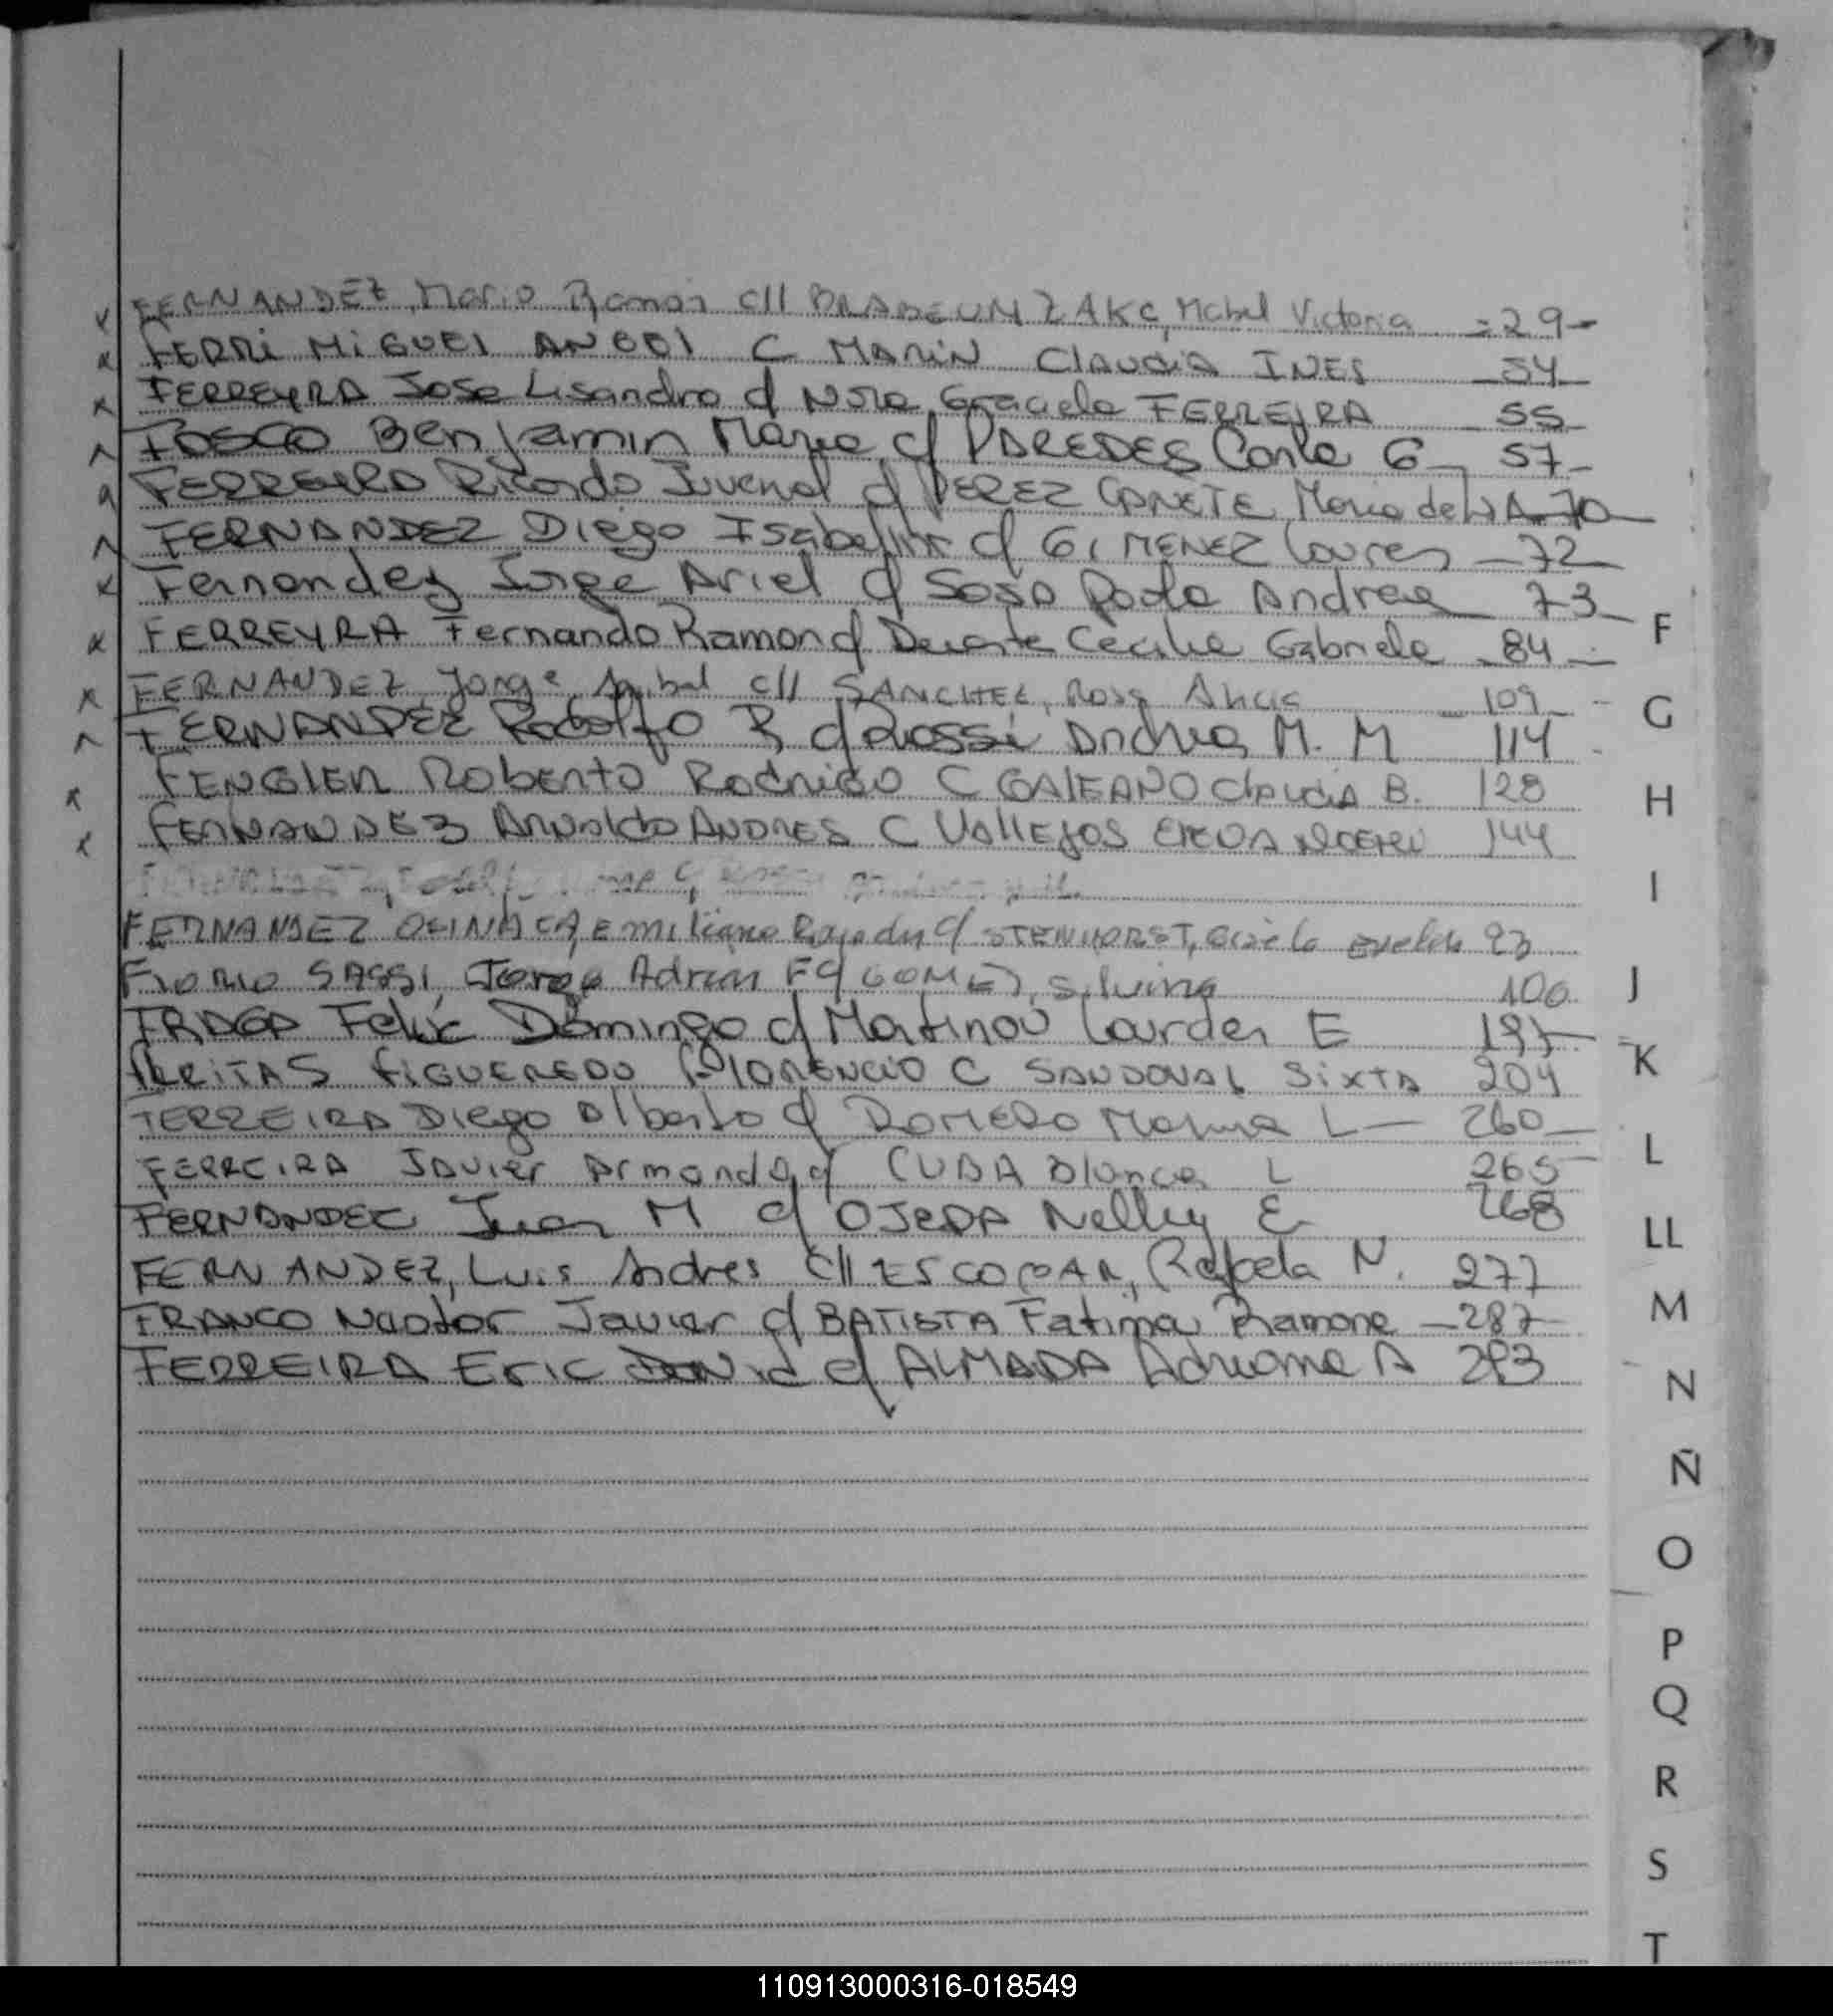 FERNANDEZ, Mario Ramon c// Mabel Victoria - 29 -
FERRI MIGUEL ANGEL C MARIN CLAUDIA INES - 54 -
FERREYRA Jose Lisandro c/ Nora Graciela FERREYRA - 55 -
FOSCO Benjamin Mario c/ PAREDES Carla G - 57 -
FERREYRA Ricardo Juvenal c/ PEREZ CAÑETE Maria de - 70 -
FERNANDEZ Diego c/ GIMENEZ - 72 -
Fernandez Jorge Ariel c/ SOSA Paola Andrea - 73 -
FERREYRA Fernando Ramon c/ Duarte Cecilia Gabriela - 84 -
FERNANDEZ, Jorge Anibal c// SANCHEZ, Rosa Alicia - 109 -
FERNANDEZ Rodolfo R c/ Rossi Andrea M. M - 114 -
FENGLER Roberto Rodrigo C GALEANO Claudia B. 128
FERNANDEZ Arnaldo ANDRES C VALLEJOS 144
FERNANDEZ Emiliano c/ STENHORST, 93
FIORIO SASSI, Jorge Adrian c/ GOMEZ, Silvina 106
FRAGA Felix Domingo c/ Martinou Lourdes E 197
FREITAS FIGUEREDO FLORENCIO C SANDOVAL SIXTA 204
FERREIRA Diego Alberto c/ ROMERO Marina L - 260 -
FERREIRA Javier Armando c/ CUBA Blanca L 265 -
FERNANDEZ Juan M c/ OJEDA Nelly E 268
FERNANDEZ, Luis Andres c// ESCOBAR, Rafaela N. 277
FRANCO Nestor Javier c/ BATISTA Fatima Ramona - 287 -
FERREIRA Eric David c/ ALMADA Adriana A 293
F
G
H
I
J
K
L
LL
M
N
Ñ
O
P
Q
R
S
T
110913000316-018549